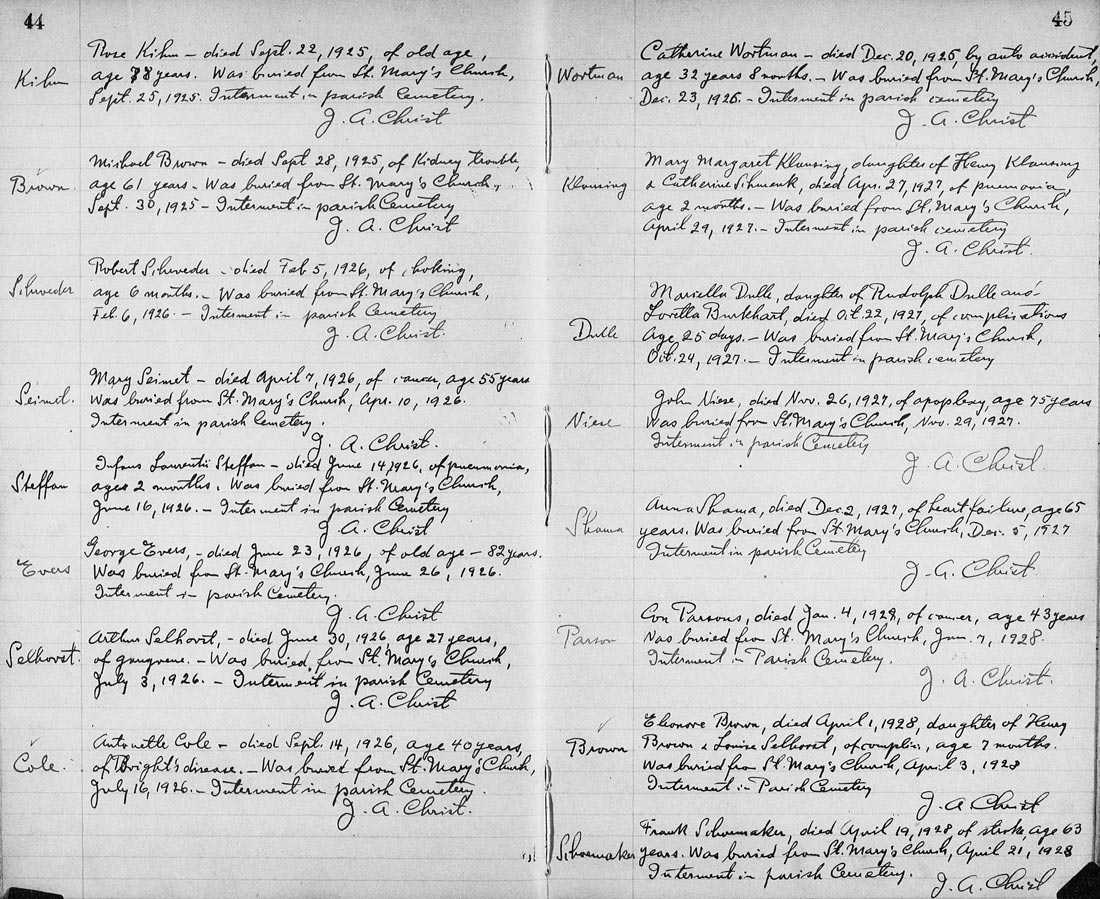 44
Kihm
Rose Kihm – died Sept. 22, 1925, of old age,
age 78 years. Was buried from St. Mary's Church,
Sept. 25, 1925. Interment in parish Cemetery.
J. A. Christ
Brown
Michael Brown – died Sept 28, 1925, of Kidney trouble,
age 61 years – Was buried from St. Mary's Church,
Sept. 30, 1925 – Interment in parish Cemetery
J. A. Christ
Schroeder
Robert Schroeder – died Feb 5, 1926, of choking,
age 6 months. – Was buried from St. Mary's Church,
Feb. 6, 1926 – Interment in parish Cemetery
J. A. Christ
Seimet.
Mary Seimet – died April 7, 1926, of cancer, age 55 years
Was buried from St. Mary's Church, Apr. 10, 1926.
Interment in parish Cemetery.
J. A. Christ.
Steffan
Infans Laurentii Steffan – died June 14, 1926, of pneumonia,
ages 2 months. Was buried from St. Mary's Church,
June 16, 1926. – Interment in parish Cemetery
J. A. Christ
Evers
George Evers, – died June 23, 1926, of old age – 82 years.
Was buried from St. Mary's Church, June 26, 1926.
Interment in parish Cemetery.
J. A. Christ
Selhorst.
Arthur Selhorst, – died June 30, 1926 age 27 years,
of gangrene. – Was buried from St. Mary's Church,
July 3, 1926. – Interment in parish Cemetery
J. A. Christ
Cole.
Antonette Cole – died Sept. 14, 1926, age 40 years,
of Bright's disease. – Was buried from St. Mary's Church,
July 16, 1926. – Interment in parish Cemetery.
J. A. Christ.
45
Wortman
Catherine Wortman – died Dec. 20, 1926, by auto accident,
age 32 years 8 months. – Was buried from St. Mary's Church,
Dec. 23, 1926. – Interment in parish cemetery
J. A. Christ
Klausing
Mary Margaret Klausing, daughter of Henry Klausing
& Catherine Schmenk, died Apr. 27, 1927, of pneumonia,
age 2 months. – Was buried from St. Mary's Church,
April 29, 1927. – Interment in parish cemetery
J. A. Christ.
Dulle
Mariella Dulle, daughter of Rudolph Dulle and
Loretta Burkhart, died Oct. 22, 1927, of complications
Age 25 days. – Was buried from St. Mary's Church,
Oct. 24, 1927. – Interment in parish cemetery
Niese
John Niese, died Nov. 26, 1927, of apoplexy, age 75 years
Was buried from St. Mary's Church, Nov. 29, 1927.
Interment in parish Cemetery
J. A. Christ.
Shama
Anna Shama, died Dec 2, 1927, of heart failure, age 65
years. Was buried from St. Mary's Church, Dec. 5, 1927
Interment in parish Cemetery
J. A. Christ.
Parson
Con Parsons, died Jan. 4, 1928, of cancer, age 43 years
Was buried from St. Mary's Church, Jan. 7, 1928.
Interment in Parish Cemetery.
J. A. Christ.
Brown
Elenore Brown, died April 1, 1928, daughter of Henry
Brown & Louise Selhorst, of complic., age 7 months.
Was buried from St. Mary's Church, April 3, 1928
Interment in Parish Cemetery
J. A. Christ
Schoemaker
Frank Schoemaker, died April 19, 1928 of stroke, age 63
years. Was buried from St. Mary's Church, April 21, 1928
Interment in parish Cemetery.
J. A. Christ